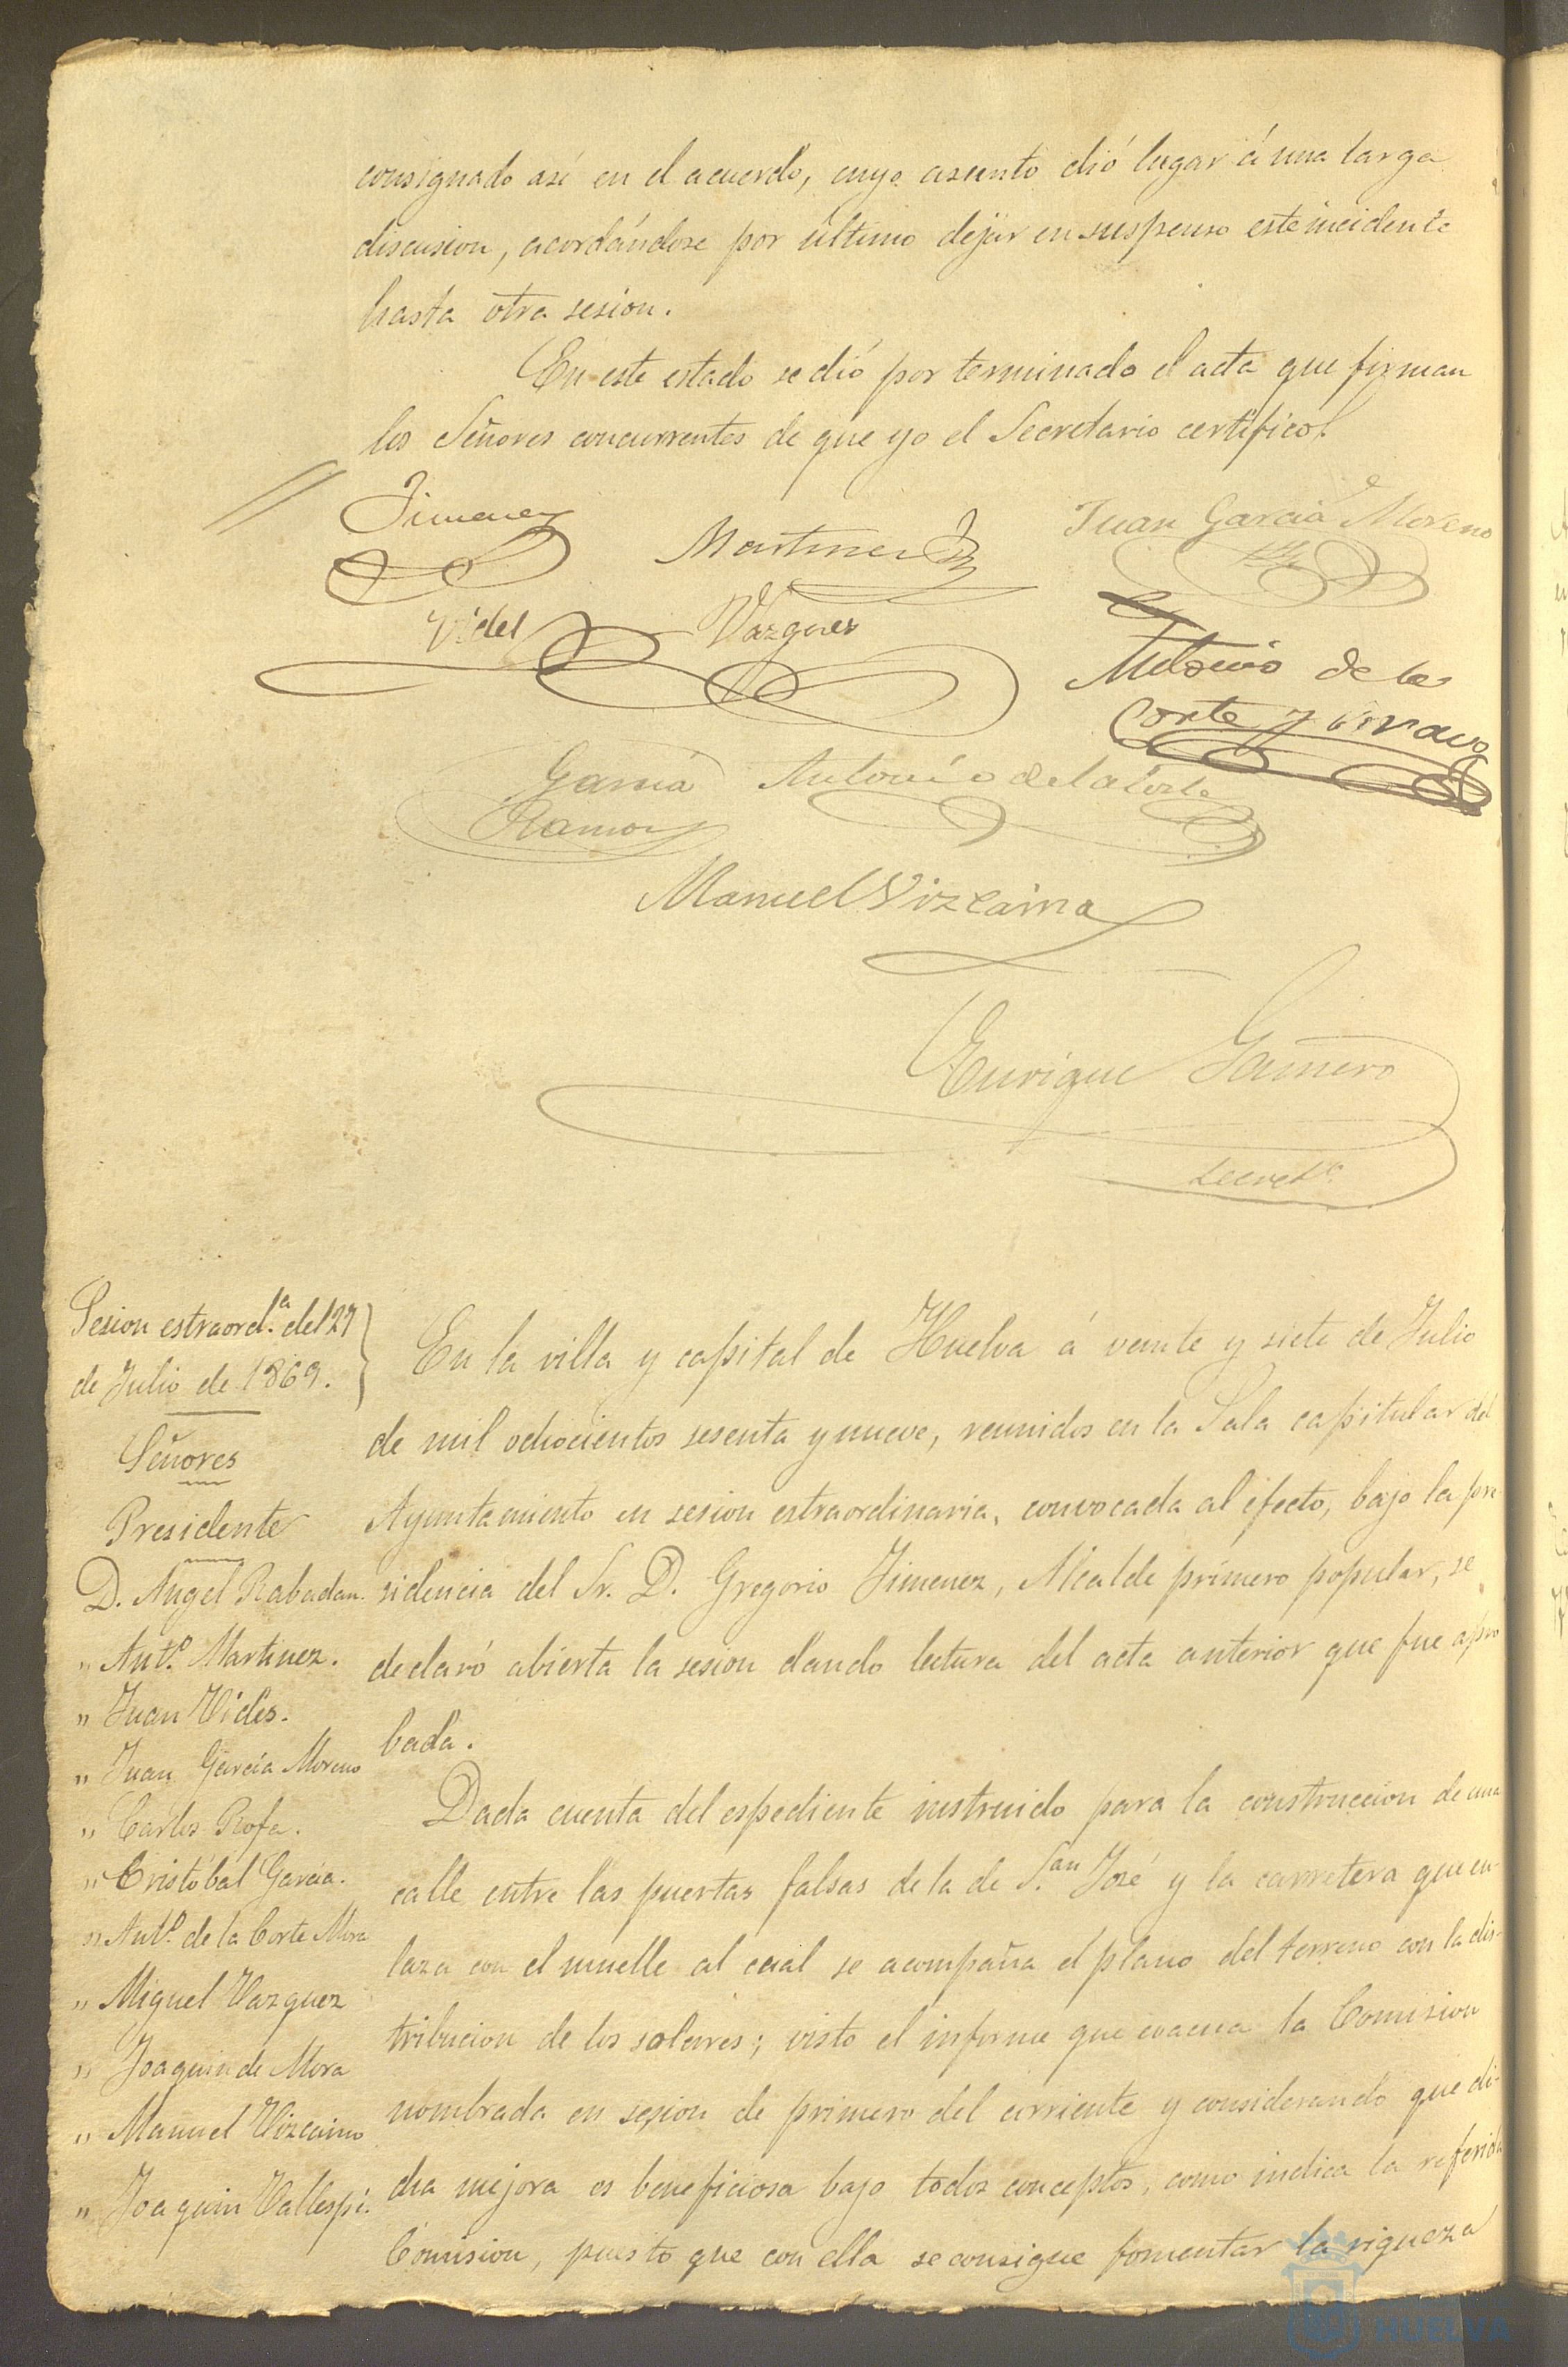 consignado asi en el acuerdo, cuyo asunto dió lugar á una larga
discusion, acordándose por último dejar en suspenso este incidente
hasta otra sesion.
En este estado se dió por terminado el acta que firman
los Señores concurrentes de que yo el Secretario certifico.
Jimenez
Martinez
Juan Garcia Moreno
Vides
Vazquez
Antonio de la
Corte y
Garcia
Ramos
Antonio de la Corte
Manuel Vizcaino
Enrique
Secret.º
Sesion estraord.ª del 27
de Julio de 1869.
Señores
Presidente
D. Angel Rabadan.
" Ant.º Martinez.
" Juan Vides.
" Juan Garcia Moreno
" Carlos Rofa.
" Cristóbal Garcia.
" Ant.º de la Corte Mora
" Miguel Vazquez
" Joaquin de Mora
" Manuel Vizcaino
" Joaquin Vallespi.
En la villa y capital de Huelva á veinte y siete de Julio
de mil ochocientos sesenta y nueve, reunidos en la Sala capitular del
Ayuntamiento en sesion estraordinaria, convocada al efecto, bajo la pre
sidencia del Sr. D. Gregorio Jimenez, Alcalde primero popular, se
declaró abierta la sesion dando lectura del acta anterior que fue apro
bada.
Dada cuenta del espediente instruido para la construccion de una
calle entre las puertas falsas de la de S.an José y la carretera que en-
laza con el muelle al cual se acompaña el plano del terreno con la dis-
tribucion de los solares; visto el informe que evacua la Comision
nombrada en sesion de primero del corriente y considerando que di-
cha mejora es beneficiosa bajo todos conceptos, como indica la referida
Comision, puesto que con ella se consigue fomentar la riqueza
HUELVA